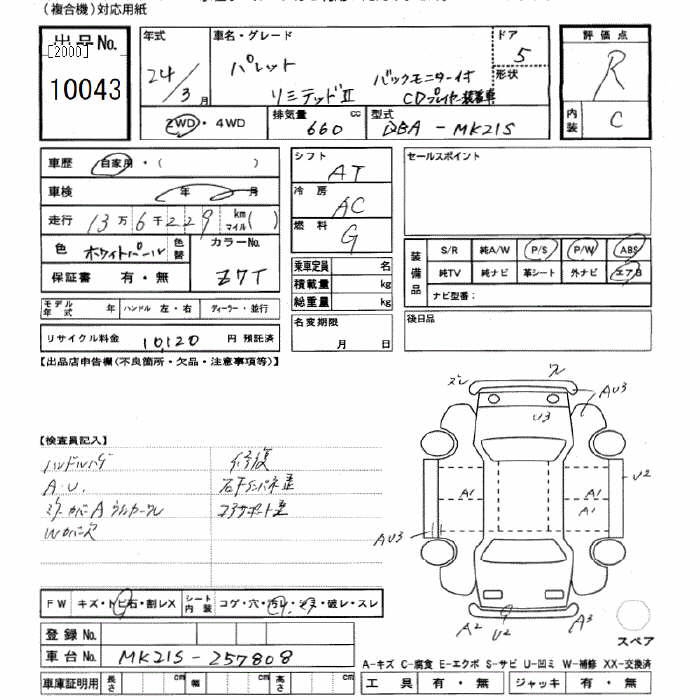 (複合機)対応用紙
出品No.
[2000]
10043
年式
24/3月
車名・グレード
パレット
リミテッドⅡ
バックモニター付
CDプレイヤー装着車
ドア
5
形状
評価点
R
内装
C
2WD・4WD
排気量
660 cc
型式
DBA-MK21S
車歴 自家用・( )
車検 年 月
走行 13万6千229 km マイル( )
色 ホワイトパール
色替
カラーNo.
Z7T
保証書 有・無
モデル年式 年
ハンドル 左・右
ディーラー・並行
リサイクル料金 10,120 円 預託済
シフト AT
冷房 AC
燃料 G
乗車定員 名
積載量 kg
総重量 kg
名変期限
月 日
セールスポイント
装備品
S/R 純A/W P/S P/W ABS
純TV 純ナビ 革シート 外ナビ エアB
ナビ型番:
後日品
【出品店申告欄(不良箇所・欠品・注意事項等)】
【検査員記入】
A・U.
修復
コアサポート歪
FW キズ・トビ石・割レX
シート内装 コゲ・穴・汚レ・シミ・破レ・スレ
登録No.
車台No. MK21S-257808
車庫証明用 長さ cm 幅 cm 高さ cm
ズレ
ワレ
AU3
U3
U2
A1
A1
A1
AU3
A2
U2
A3
スペア
A-キズ C-腐食 E-エクボ S-サビ U-凹ミ W-補修 XX-交換済
工具 有・無 ジャッキ 有・無